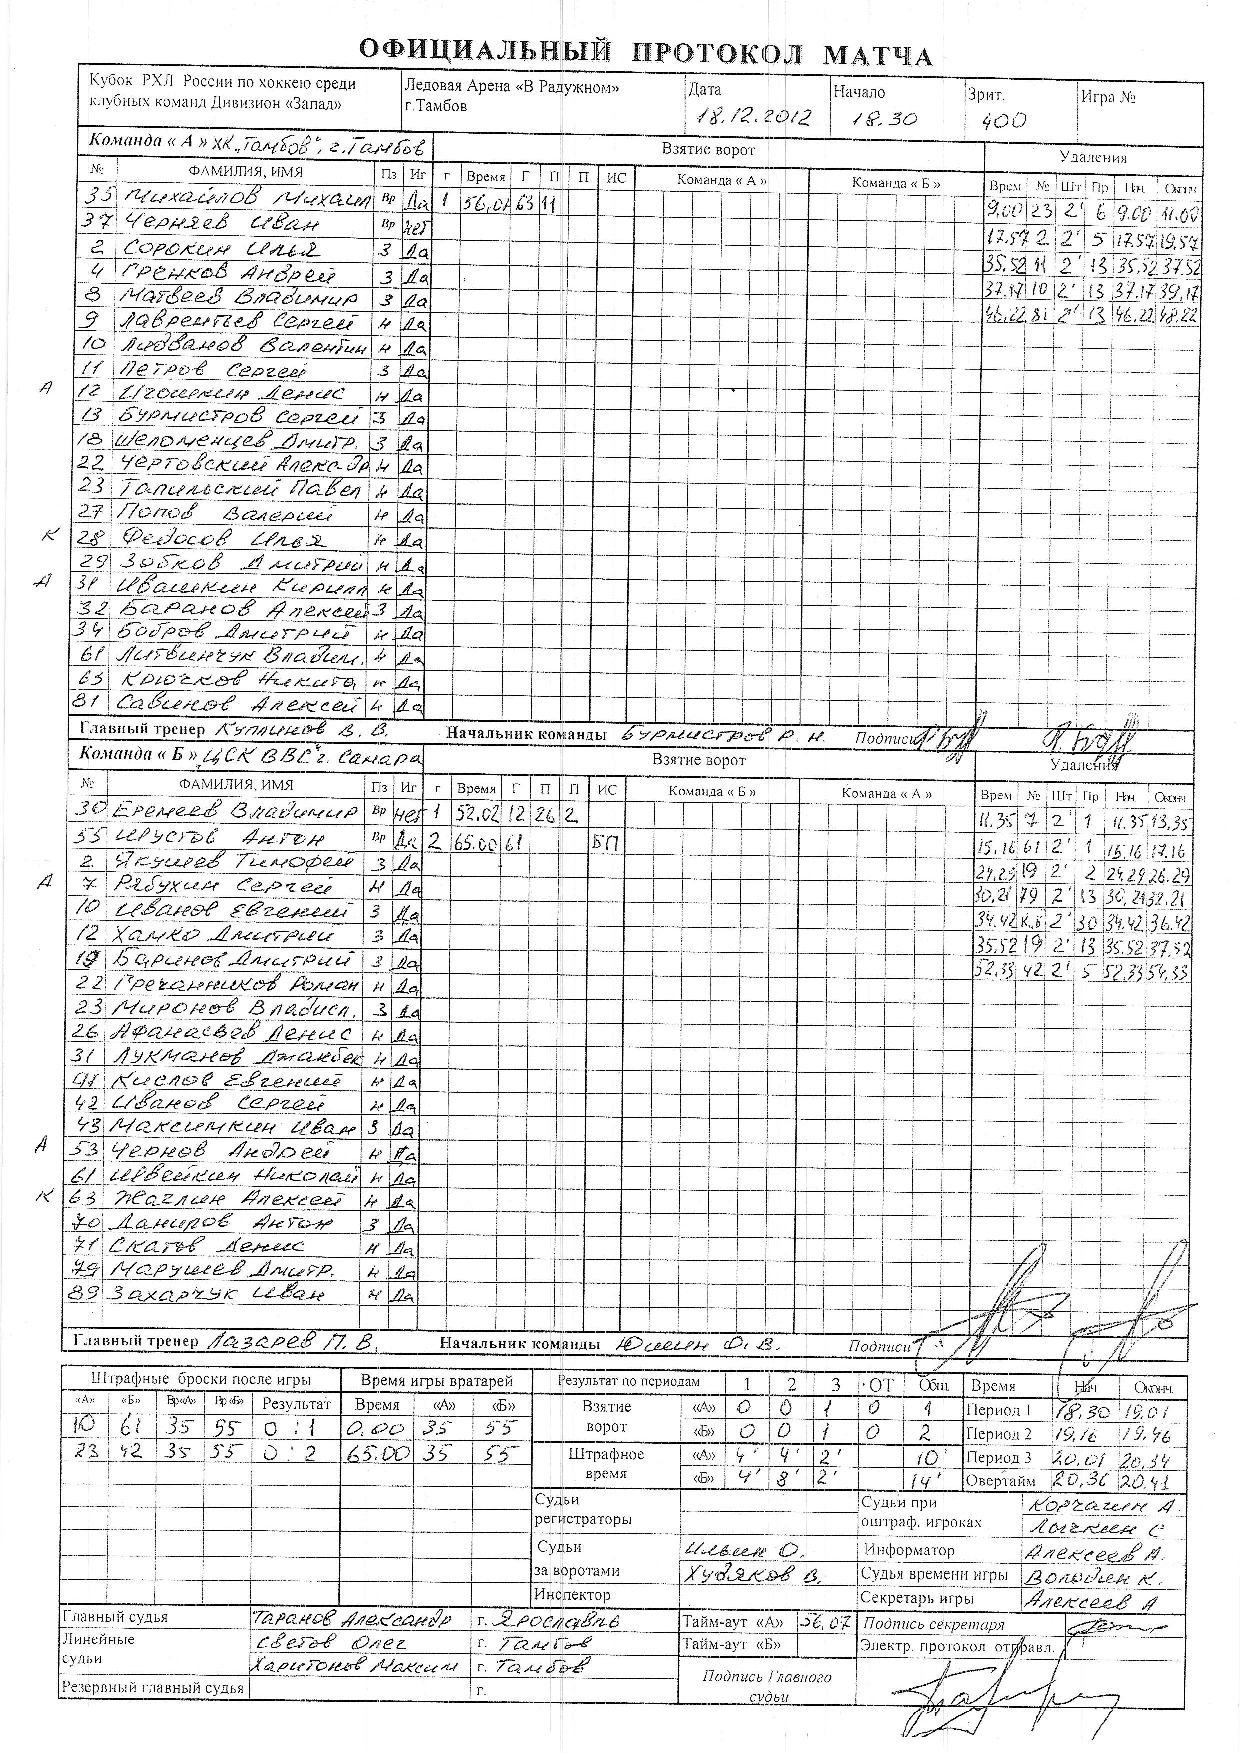 ОФИЦИАЛЬНЫЙ ПРОТОКОЛ МАТЧА
Кубок РХЛ России по хоккею среди клубных команд Дивизион «Запад» Ледовая Арена «В Радужном» г.Тамбов Дата 18.12.2012 Начало 18.30 Зрит. 400 Игра №
Команда « А » ХК „Тамбов", г. Тамбов Взятие ворот Удаления
№ ФАМИЛИЯ, ИМЯ Пз Иг г Время Г П П ИС Команда « А » Команда « Б » Врем № Шт Пр Нач. Оконч
35 Михайлов Михаил Вр Да 1 56.07 63 11 9.00 23 2' 6 9.00 11.00
37 Черняев Иван Вр нет 17.57 2 2' 5 17.57 19.57
2 Сорокин Илья З Да 35.52 11 2' 13 35.52 37.52
4 Гренков Андрей З Да 37.17 10 2' 13 37.17 39.17
8 Матвеев Владимир З Да 46.22 81 2' 13 46.22 48.22
9 Лаврентьев Сергей н Да
10 Валентин н Да
11 Петров Сергей З Да
А 12 Игошкин Денис н Да
13 Бурмистров Сергей З Да
18 Шеломенцев Дмитр. З Да
22 Чертовский Алекс-др н Да
23 Тапильский Павел н Да
27 Попов Валерий н Да
К 28 Федосов Илья н Да
29 Зобков Дмитрий н Да
А 31 Ивашкин Кирилл н Да
32 Баранов Алексей З Да
34 Бобров Дмитрий н Да
61 Литвинчук Владим. н Да
63 Крючков Никита н Да
81 Савинов Алексей н Да
Главный тренер Куплинов В. В. Начальник команды Бурмистров Р. Н. Подписи
Команда « Б » „ЦСК ВВС" г. Самара Взятие ворот Удаления
№ ФАМИЛИЯ, ИМЯ Пз Иг г Время Г П П ИС Команда « Б » Команда « А » Врем № Шт Пр Нач. Оконч
30 Еремеев Владимир Вр нет 1 52.02 12 26 2 11.35 7 2' 1 11.35 13.35
55 Шустов Антон Вр Да 2 65.00 61 БП 15.16 61 2' 1 15.16 17.16
2 Якушев Тимофей З Да 24.29 19 2' 2 24.29 26.29
А 7 Рябухин Сергей н Да 30.21 79 2' 13 30.21 32.21
10 Иванов Евгений З Да 34.42 К.Б 2' 30 34.42 36.42
12 Хамко Дмитрий З Да 35.52 19 2' 13 35.52 37.52
19 Баринов Дмитрий З Да 52.33 42 2' 5 52.33 54.33
22 Гречанников Роман н Да
23 Миронов Владисл. З Да
26 Афанасьев Денис н Да
31 Лукманов Джанбек н Да
41 Кислов Евгений н Да
42 Иванов Сергей н Да
43 Максимкин Иван З Да
А 53 Чернов Андрей н Да
61 Швейкин Николай н Да
К 63 Жаглин Алексей н Да
70 Данилов Антон З Да
71 Скатов Денис н Да
79 Марушев Дмитр. н Да
89 Захарчук Иван н Да
Главный тренер Лазарев П. В. Начальник команды Юшин О. В. Подписи
Штрафные броски после игры Время игры вратарей Результат по периодам 1 2 3 ОТ Общ Время Нач Оконч.
«А» «Б» Вр«А» Вр«Б» Результат Время «А» «Б» Взятие ворот «А» 0 0 1 0 1 Период 1 18.30 19.01
10 61 35 55 0 : 1 0.00 35 55 «Б» 0 0 1 0 2 Период 2 19.16 19.46
23 42 35 55 0 : 2 65.00 35 55 Штрафное время «А» 4' 4' 2' 10' Период 3 20.01 20.34
«Б» 4' 8' 2' 14' Овертайм 20.36 20.41
Судьи регистраторы Судьи при оштраф. игроках Корчагин А.
Лычкин С
Судьи за воротами Ильин О. Информатор Алексеев А.
Худяков В. Судья времени игры Володин К.
Инспектор Секретарь игры Алексеев А
Главный судья Таранов Александр г. Ярославль Тайм-аут «А» 56.07 Подпись секретаря
Линейные судьи Светов Олег г. Тамбов Тайм-аут «Б» Электр. протокол отправл.
Харитонов Максим г. Тамбов Подпись Главного судьи
Резервный главный судья г.